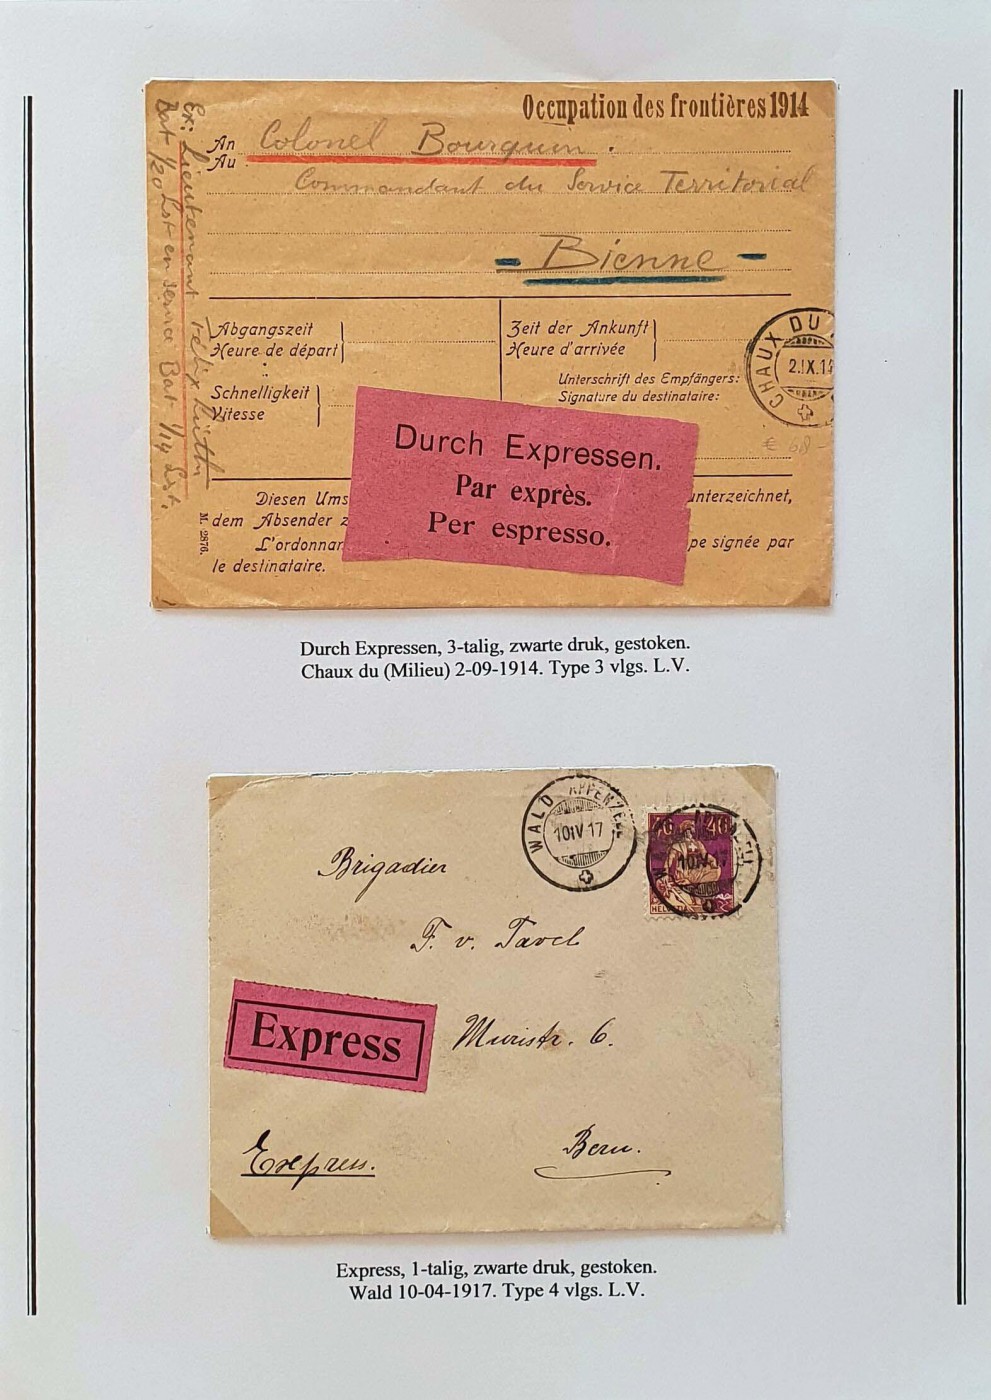 Occupation des frontières 1914
An Colonel Bourquin.
Au
Commandant du Service Territorial
Bienne
Ex: Lieutenant Félix
Bat 1/20 Lst en service Bat. 1/19 Lst.
Abgangszeit
Heure de départ
Zeit der Ankunft
Heure d'arrivée
CHAUX DU
2.IX.14
Unterschrift des Empfängers:
Signature du destinataire:
Schnelligkeit
Vitesse
€ 68-
Durch Expressen.
Par exprès.
Per espresso.
Diesen Ums
unterzeichnet,
dem Absender z
L'ordonnan
pe signée par
le destinataire.
M. 2876.
Durch Expressen, 3-talig, zwarte druk, gestoken.
Chaux du (Milieu) 2-09-1914. Type 3 vlgs. L.V.
WALD APPENZELL
10IV17
40
HELVETIA
10IV17
Brigadier
F. v. Tavel
Express
Muristr. 6.
Express.
Bern.
Express, 1-talig, zwarte druk, gestoken.
Wald 10-04-1917. Type 4 vlgs. L.V.